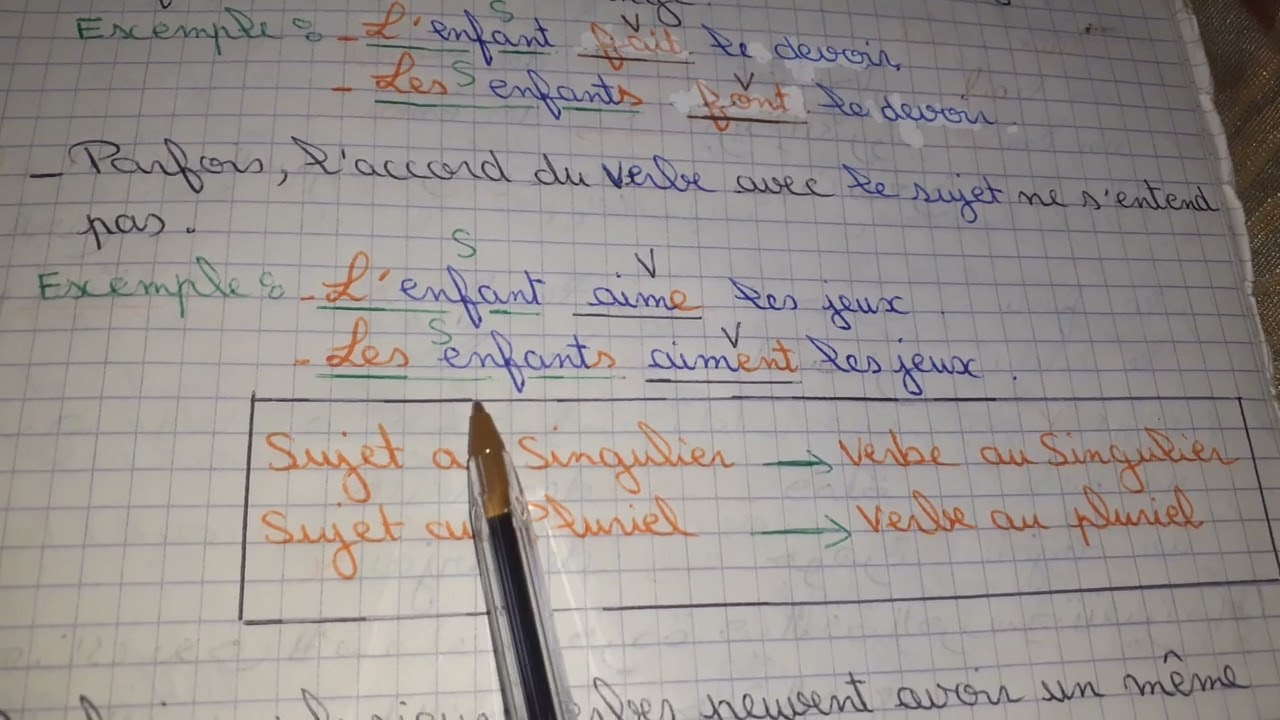 Exemple : - L'enfant fait le devoir.
- Les enfants font le devoir.
- Parfois, l'accord du verbe avec le sujet ne s'entend
pas.
Exemple : - L'enfant aime les jeux.
- Les enfants aiment les jeux.
Sujet au Singulier → verbe au Singulier
Sujet au Pluriel → verbe au pluriel
peuvent avoir un même